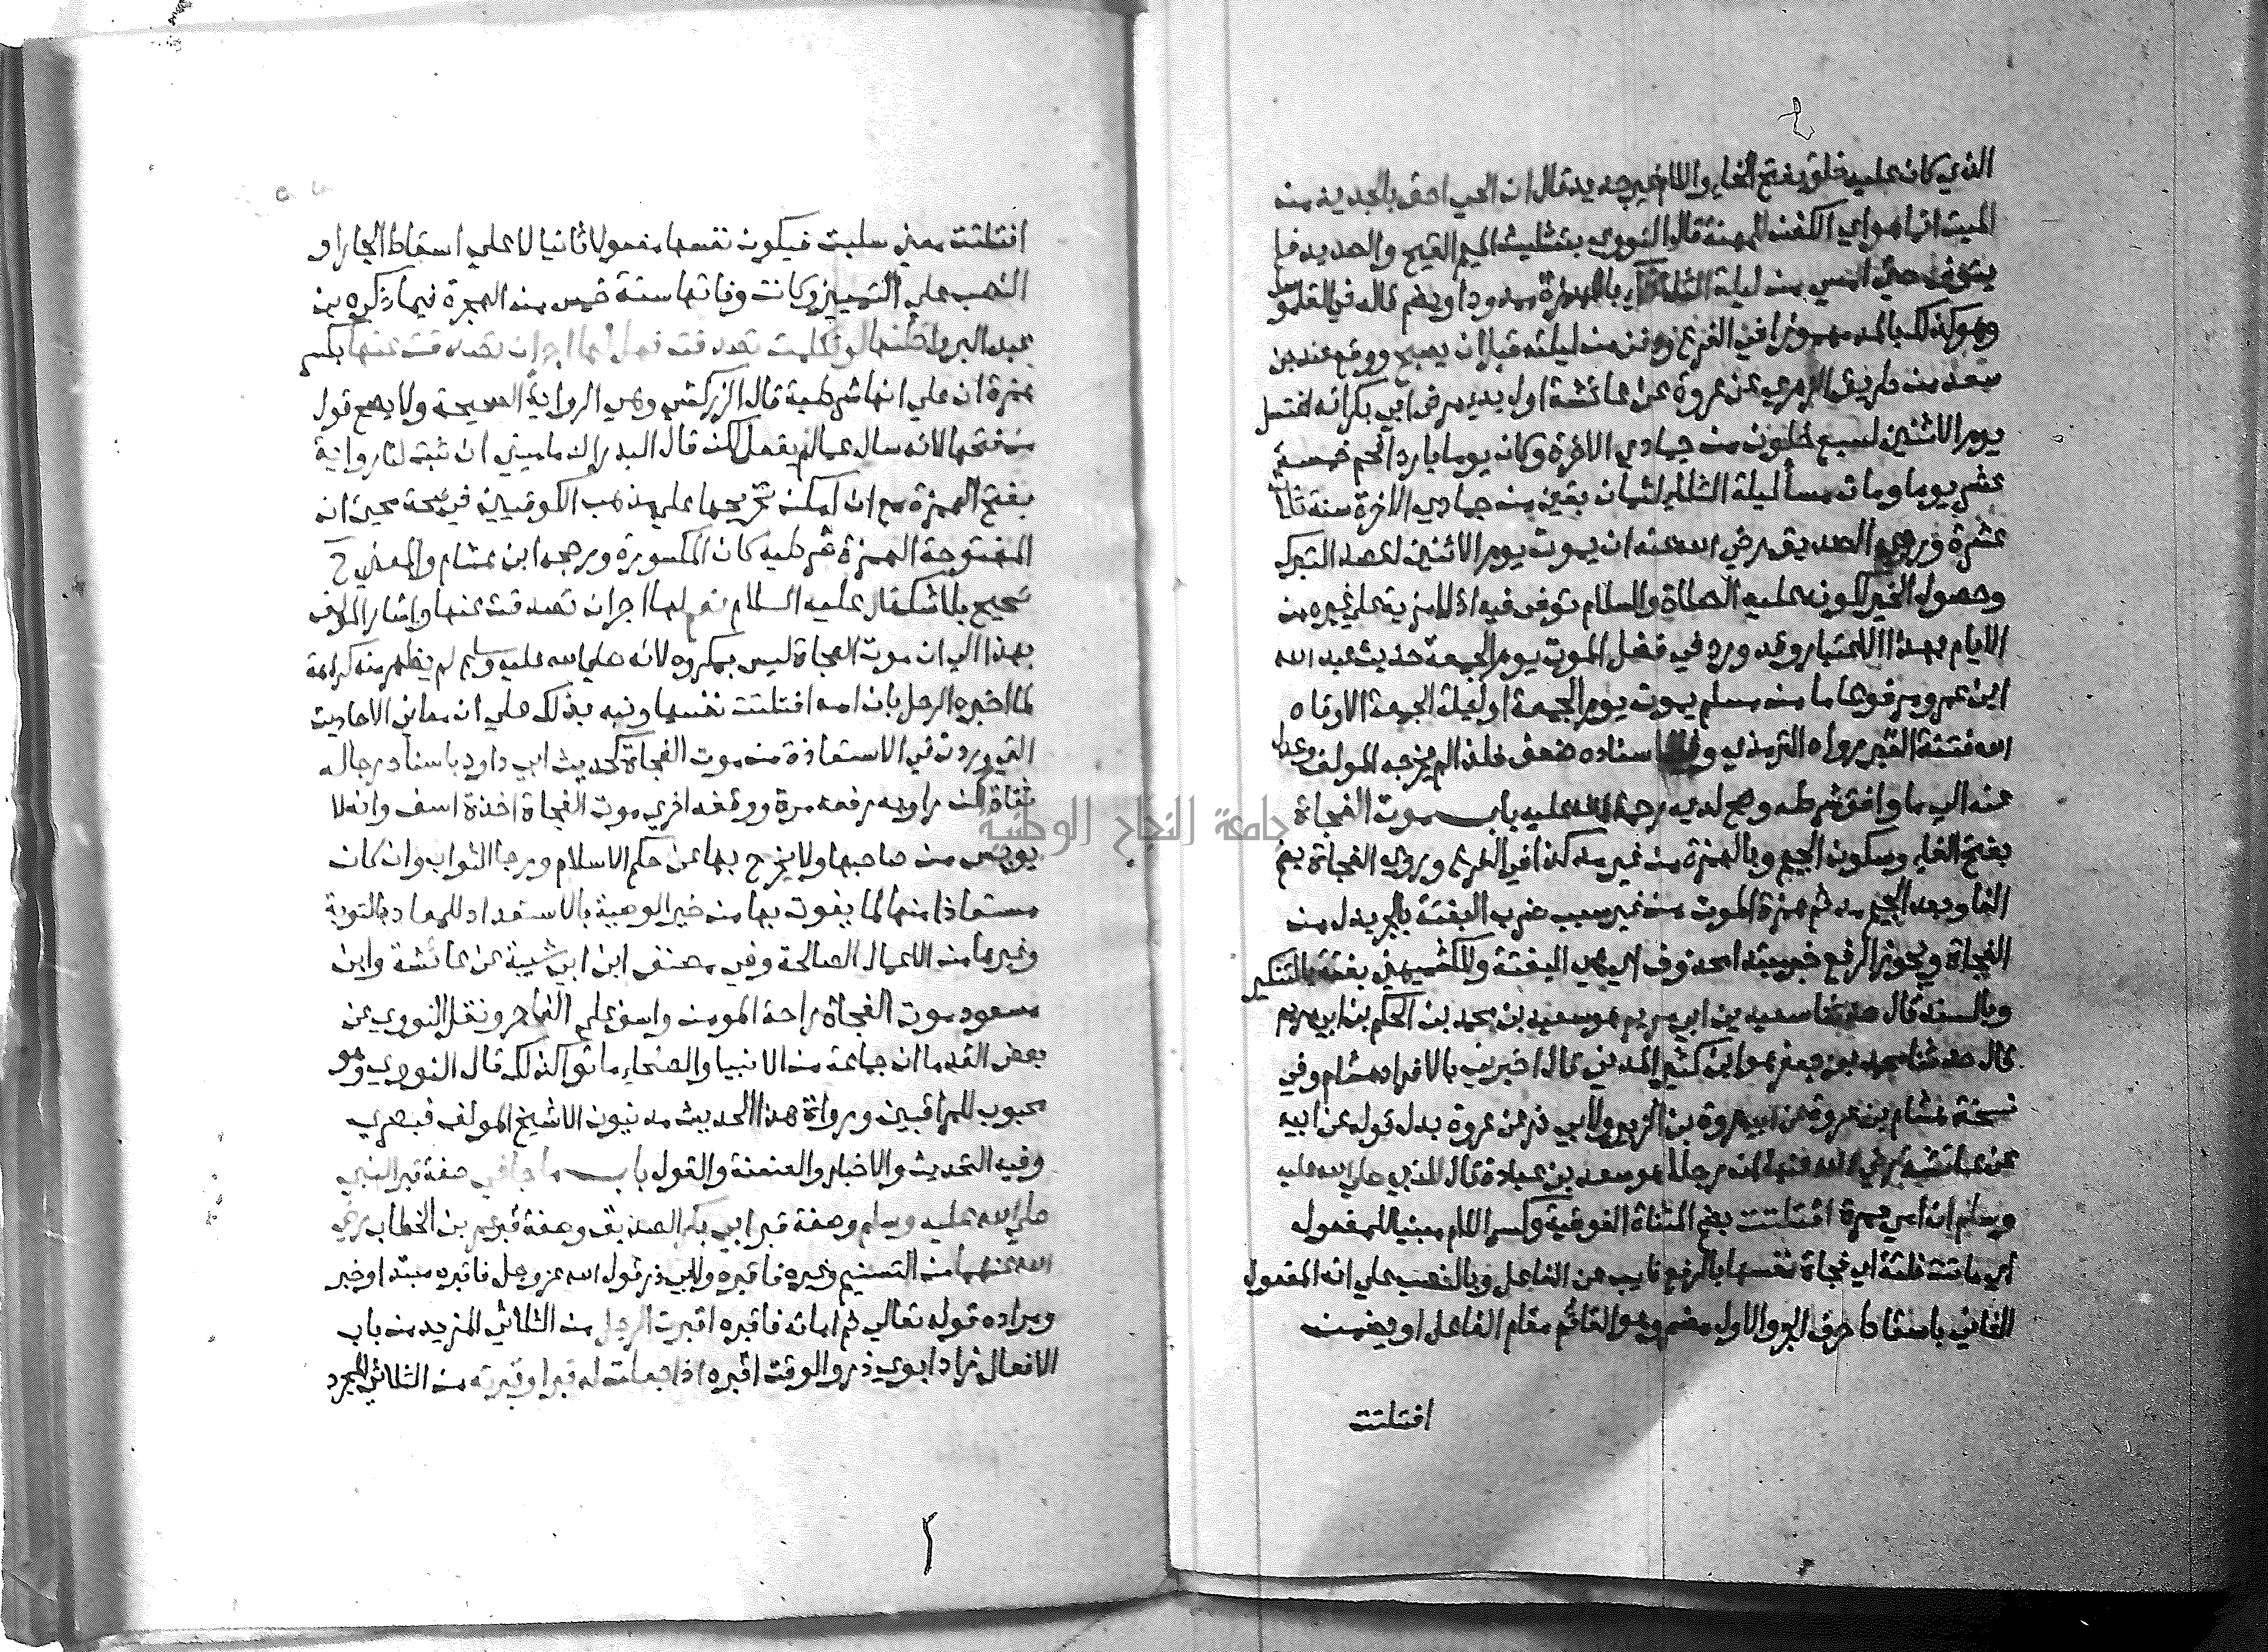 ٤
الذي كان عليه خلق بفتح الخاء واللام غير جديد قال ان الحي احق بالجديد من
الميت انما هو اي الكفن للمهنة قال النووي بتثليث الميم القيح والصديد فلم
يتوف حتي امسي من ليلة الثلاثاء بالهمزة ممدودا ويضم قاله في القاموس
وهو كذلك بالمد مهموزا في الفرع ودفن من ليلته قبل ان يصبح ووقع عند بن
سعد من طريق الزهري عن عروة عن عائشة اول بدء مرض ابي بكر انه اغتسل
يوم الاثنين لسبع خلون من جمادي الاخرة وكان يوما باردا فحم خمسة
عشر يوما ومات مسأ ليلة الثلاثا لثمان بقين من جمادي الاخرة سنة ثلاث
عشرة ورجي الصديق رضي الله عنه ان يموت يوم الاثنين لقصد التبرك
وحصول الخير لكونه عليه الصلاة والسلام توفى فيه اذ له مزية علي غيره من
الايام بهذا الاعتبار وقد ورد في فضل الموت يوم الجمعة حديث عبد الله
ابن عمرو مرفوعا ما من مسلم يموت يوم الجمعة او ليلة الجمعة الا وقاه
الله فتنة القبر رواه الترمذي وفي اسناده ضعف فلذا لم يخرجه المولف وعدل
عنه الي ما وافق شرطه وصح لديه رحمة الله عليه باب موت الفجاة
بفتح الفاء وسكون الجيم وبالهمزة من غير مد كذا في الفرع وروي الفجاة بضم
الفا وبعد الجيم مد ثم همزة الموت من غير سبب ضرب البغتة بالجر بدل من
الفجاة ويجوز الرفع خبر مبتدا محذوف اي هي البغتة وللكشميهني بغتة بالتنكير
وبالسند قال حدثنا سعيد بن ابي مريم هو سعيد بن محمد بن الحكم بن ابي مريم
قال حدثنا محمد بن جعفر هو ابن كثير المدني قال اخبرني بالافراد هشام وفي
نسخة هشام بن عروة عن ابيه عروة بن الزبير ولابي ذر عن عروة بدل قوله عن ابيه
عن عائشة رضي الله عنها ان رجلا هو سعد بن عبادة قال للنبي صلي الله عليه
وسلم ان امي عمرة افتلتت بضم المثناة الفوقية وكسر اللام مبنيا للمفعول
اي ماتت فلتة اي فجاة نفسها بالرفع نايب عن الفاعل وبالنصب علي انه المفعول
الثاني باسقاط حرف الجر والاول مضمر وهو القائم مقام الفاعل او يضمن
افتلتت
افتلتت معني سلبت فيكون نفسها مفعولا ثانيا لا علي اسقاط الجار او
النصب علي التمييز وكانت وفاتها سنة خمس من الهجرة فيما ذكره بن
عبد البر واظنها لو تكلمت تصدقت فهل لها اجر ان تصدقت عنها بكسر
همزة ان علي انها شرطية قال الزركشي وهي الرواية الصحيحة ولا يصح قول
من فتحها لانه سال عما لم يفعل لكن قال البدر الدماميني ان ثبت لنا رواية
بفتح الهمزة مع ان امكن تخريجها علي مذهب الكوفيين في صحة مجي ان
المفتوحة الهمزة شرطيه كان المكسورة ورجحه ابن هشام والمعني ح
صحيح بلا شك قال عليه السلام نعم لها اجر ان تصدقت عنها واشار المولف
بهذا الي ان موت الفجاة ليس بمكروه لانه صلي الله عليه وسلم لم يظهر منه كراهة
لما اخبره الرجل بان امه افتلتت نفسها ونبه بذلك علي ان معاني الاحاديث
التي وردت في الاستعاذة من موت الفجاة كحديث ابي داود باسناد رجاله
ثقاة لكن راويه رفعه مرة ووقفه اخري موت الفجاة اخذة اسف وانه لا
يويس من صاحبها ولا يخرج بها عن حكم الاسلام ورجا الثواب وان كان
مستعاذا منها لما يفوت بها من خير الوصية بالاستعداد للمعاد بالتوبة
وغيرها من الاعمال الصالحة وفي مصنف ابن ابي شيبة عن عائشة وابن
مسعود موت الفجاة راحة المومن واسف علي الفاجر ونقل النووي عن
بعض القدما ان جماعة من الانبيا والصلحاء ماتوا كذلك قال النووي وهو
محبوب للمراقبين ورواة هذا الحديث مدنيون الا شيخ المولف فبصري
وفيه التحديث والاخبار والعنعنة والقول باب ما جا في صفة قبر النبي
صلي الله عليه وسلم وصفة قبر ابي بكر الصديق وصفة قبر عمر بن الخطاب رضي
الله عنهما من التسنيم وغيره فاقبره ولابي ذر قول الله عز وجل فاقبره مبتدا وخبر
ومراده قوله تعالي ثم اماته فاقبره اقبرت الرجل من الثلاثي المزيد من باب
الافعال زاد ابوي ذر والوقت اقبره اذا جعلت له قبرا وقبرته من الثلاثي المجرد
جامعة النجاح الوطنية